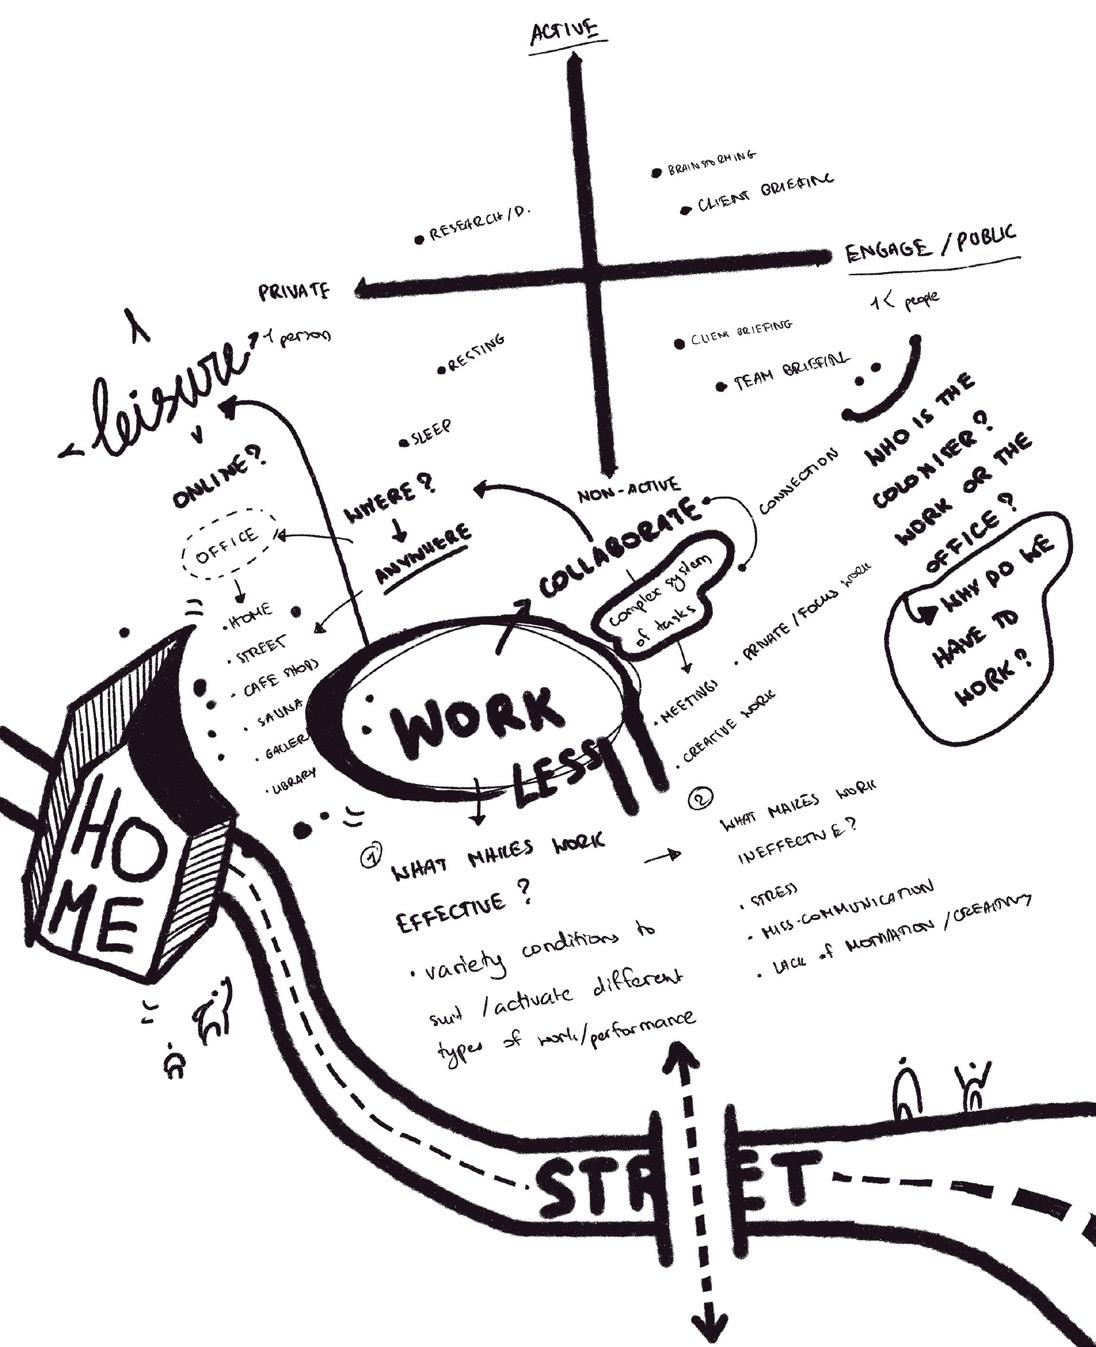 ACTIVE
• BRAINSTORMING
• CLIENT BRIEFING
• RESEARCH/D.
ENGAGE / PUBLIC
1< people
PRIVATE
1 person
• CLIENT BRIEFING
• TEAM BRIEFING
• RESTING
• SLEEP
NON-ACTIVE
leisure
ONLINE?
OFFICE
WHERE?
ANYWHERE
• HOME
• STREET
• CAFE SHOPS
• SAUNA
• GALLERY
• LIBRARY
COLLABORATE
CONNECTION
complex system
of tasks
• PRIVATE / FOCUS WORK
• MEETINGS
• CREATIVE WORK
WHO IS THE
COLONISER?
WORK OR THE
OFFICE?
WHY DO WE
HAVE TO
WORK?
WORK
LESS
HO
ME
1
WHAT MAKES WORK
EFFECTIVE?
• variety conditions to
suit / activate different
types of work/performance
2
WHAT MAKES WORK
INEFFECTIVE?
• STRESS
• MISS-COMMUNICATION
• LACK of MOTIVATION / CREATIVITY
STREET